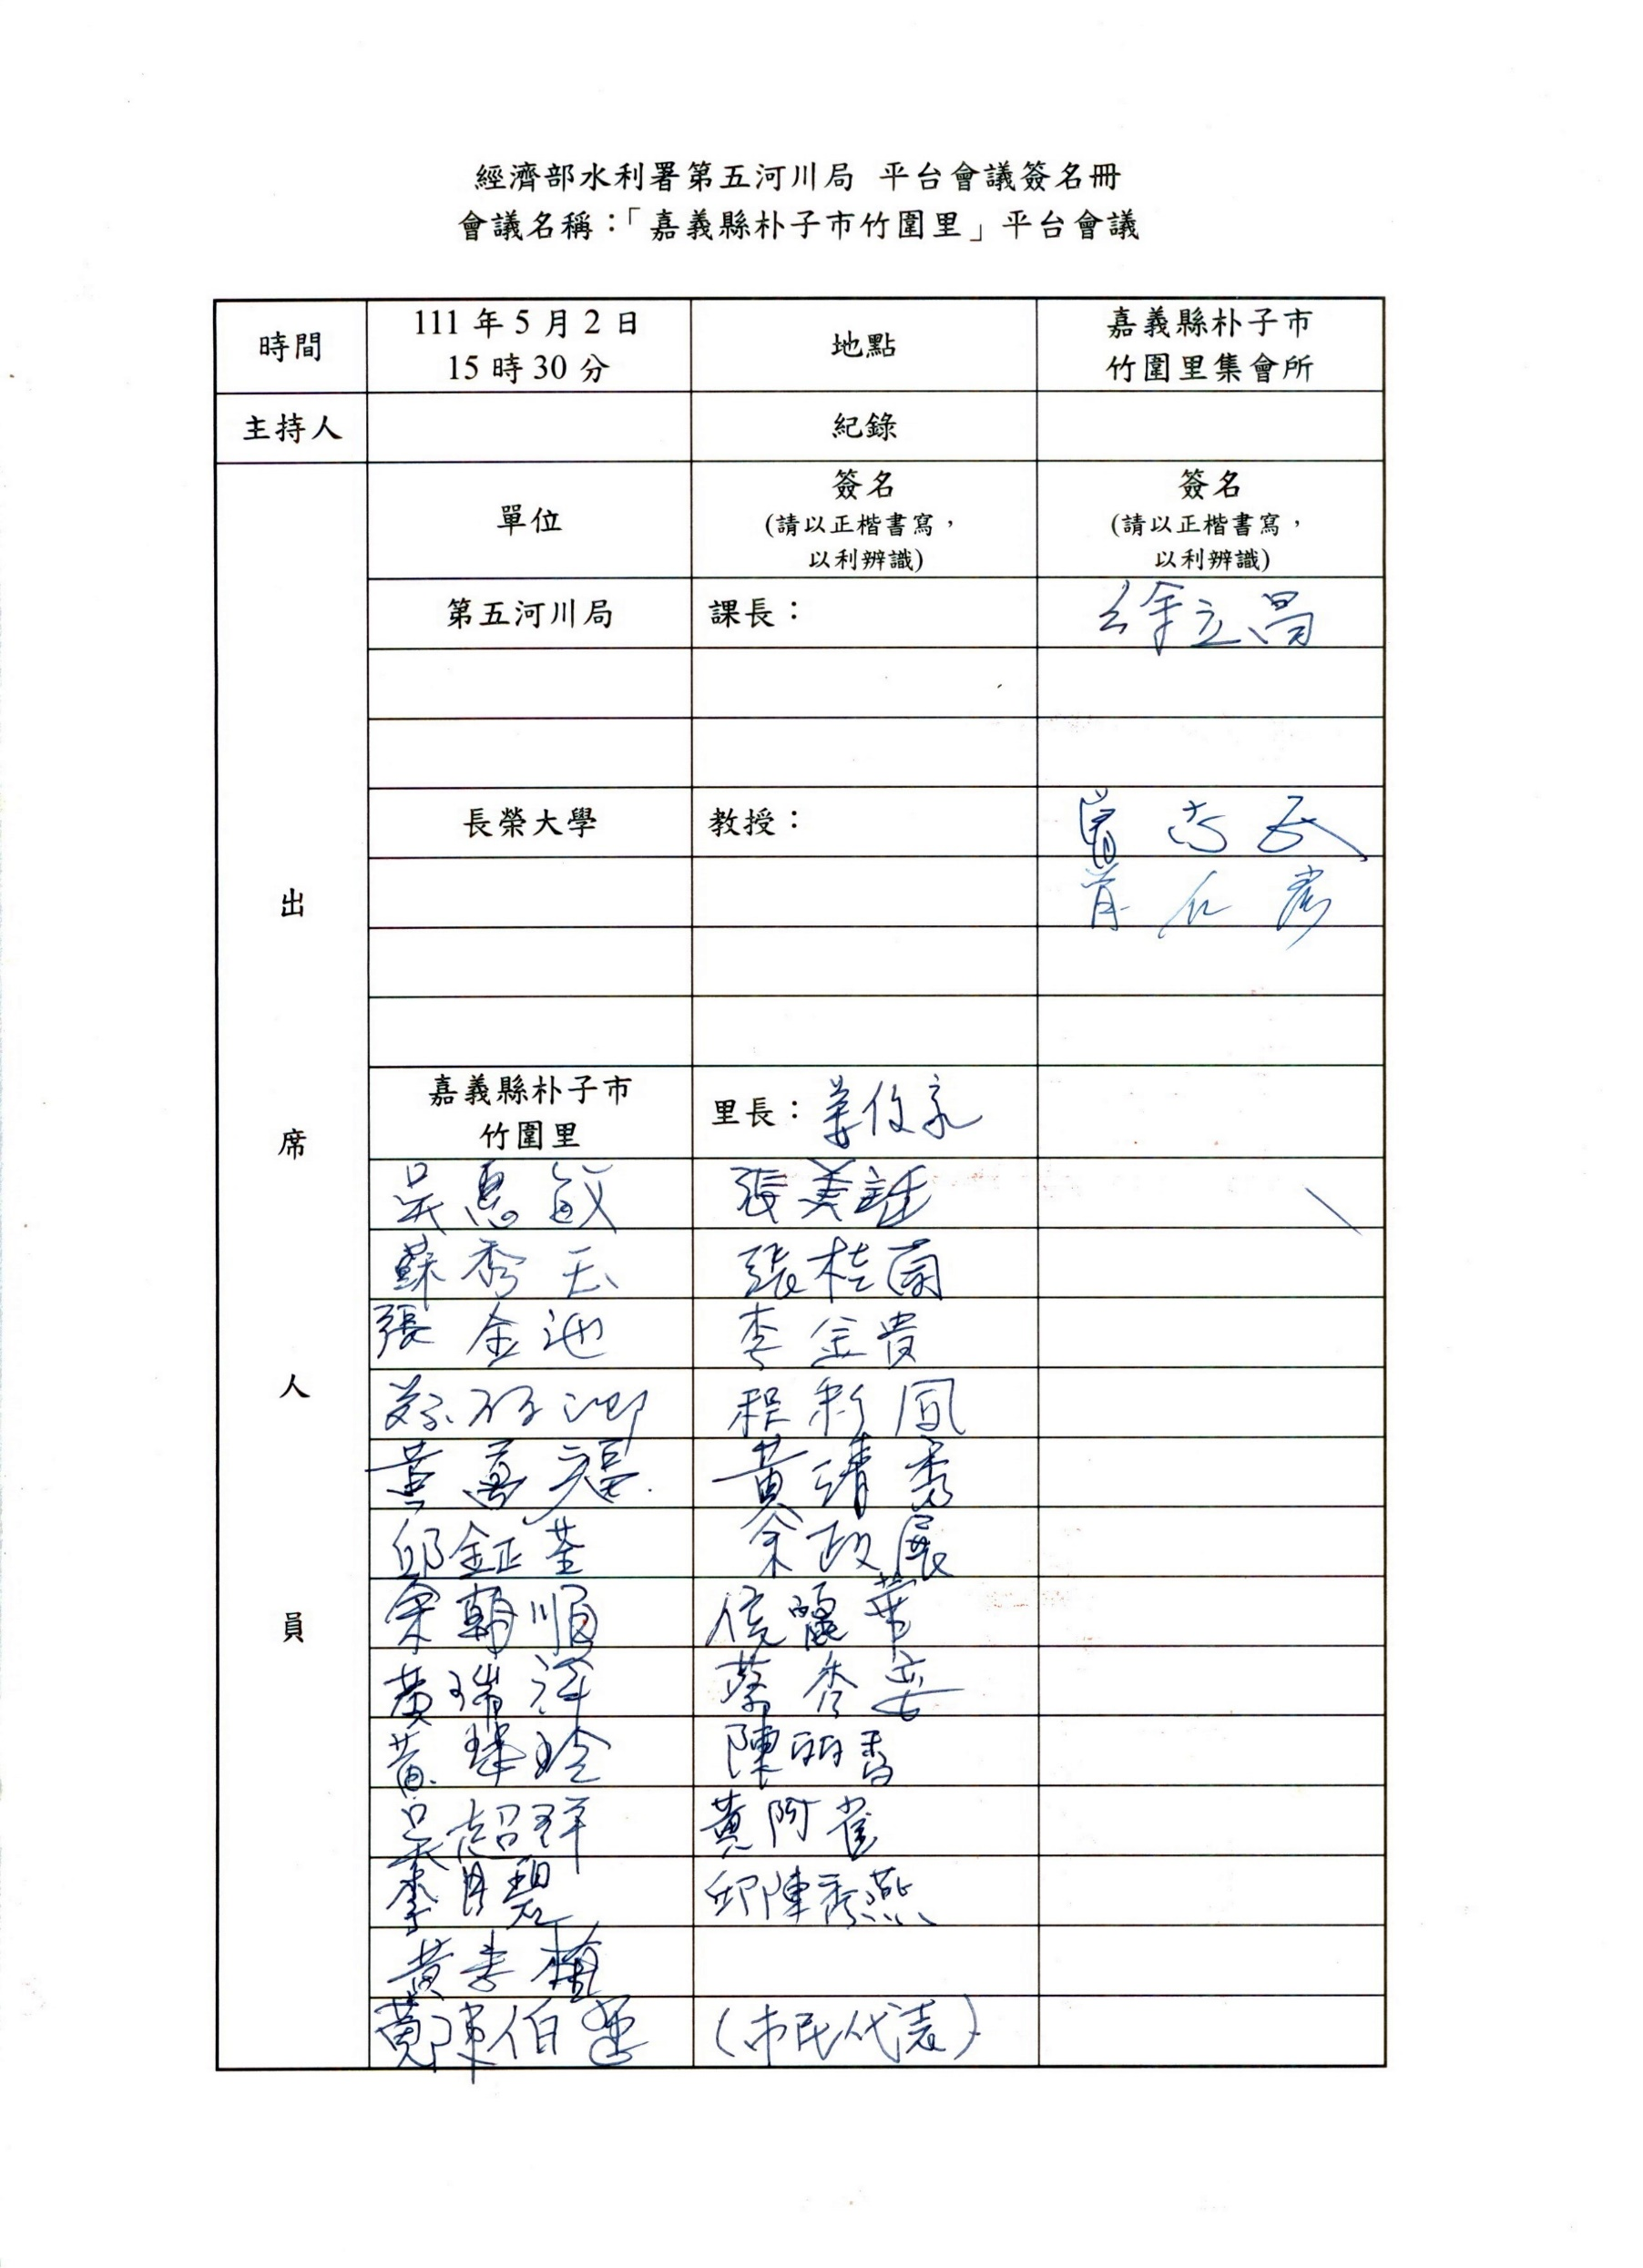 經濟部水利署第五河川局 平台會議簽名冊
會議名稱：「嘉義縣朴子市竹圍里」平台會議
時間
111 年 5 月 2 日
15 時 30 分
地點
嘉義縣朴子市
竹圍里集會所
主持人
紀錄
出席人員
單位
簽名
(請以正楷書寫，
以利辨識)
簽名
(請以正楷書寫，
以利辨識)
第五河川局
課長：
徐立昌
長榮大學
教授：
嘉義縣朴子市
竹圍里
里長：
吳惠敏
張美
蘇秀玉
張桂蘭
張金池
李金貴
程彩鳳
黃善福
黃靖秀
邱鉦荃
余政展
余朝順
黃瑞
蔡秀
黃 玲
陳 香
吳超群
黃阿雀
李月碧
邱陳秀燕
黃李梅
黃陳伯
(市民代表)